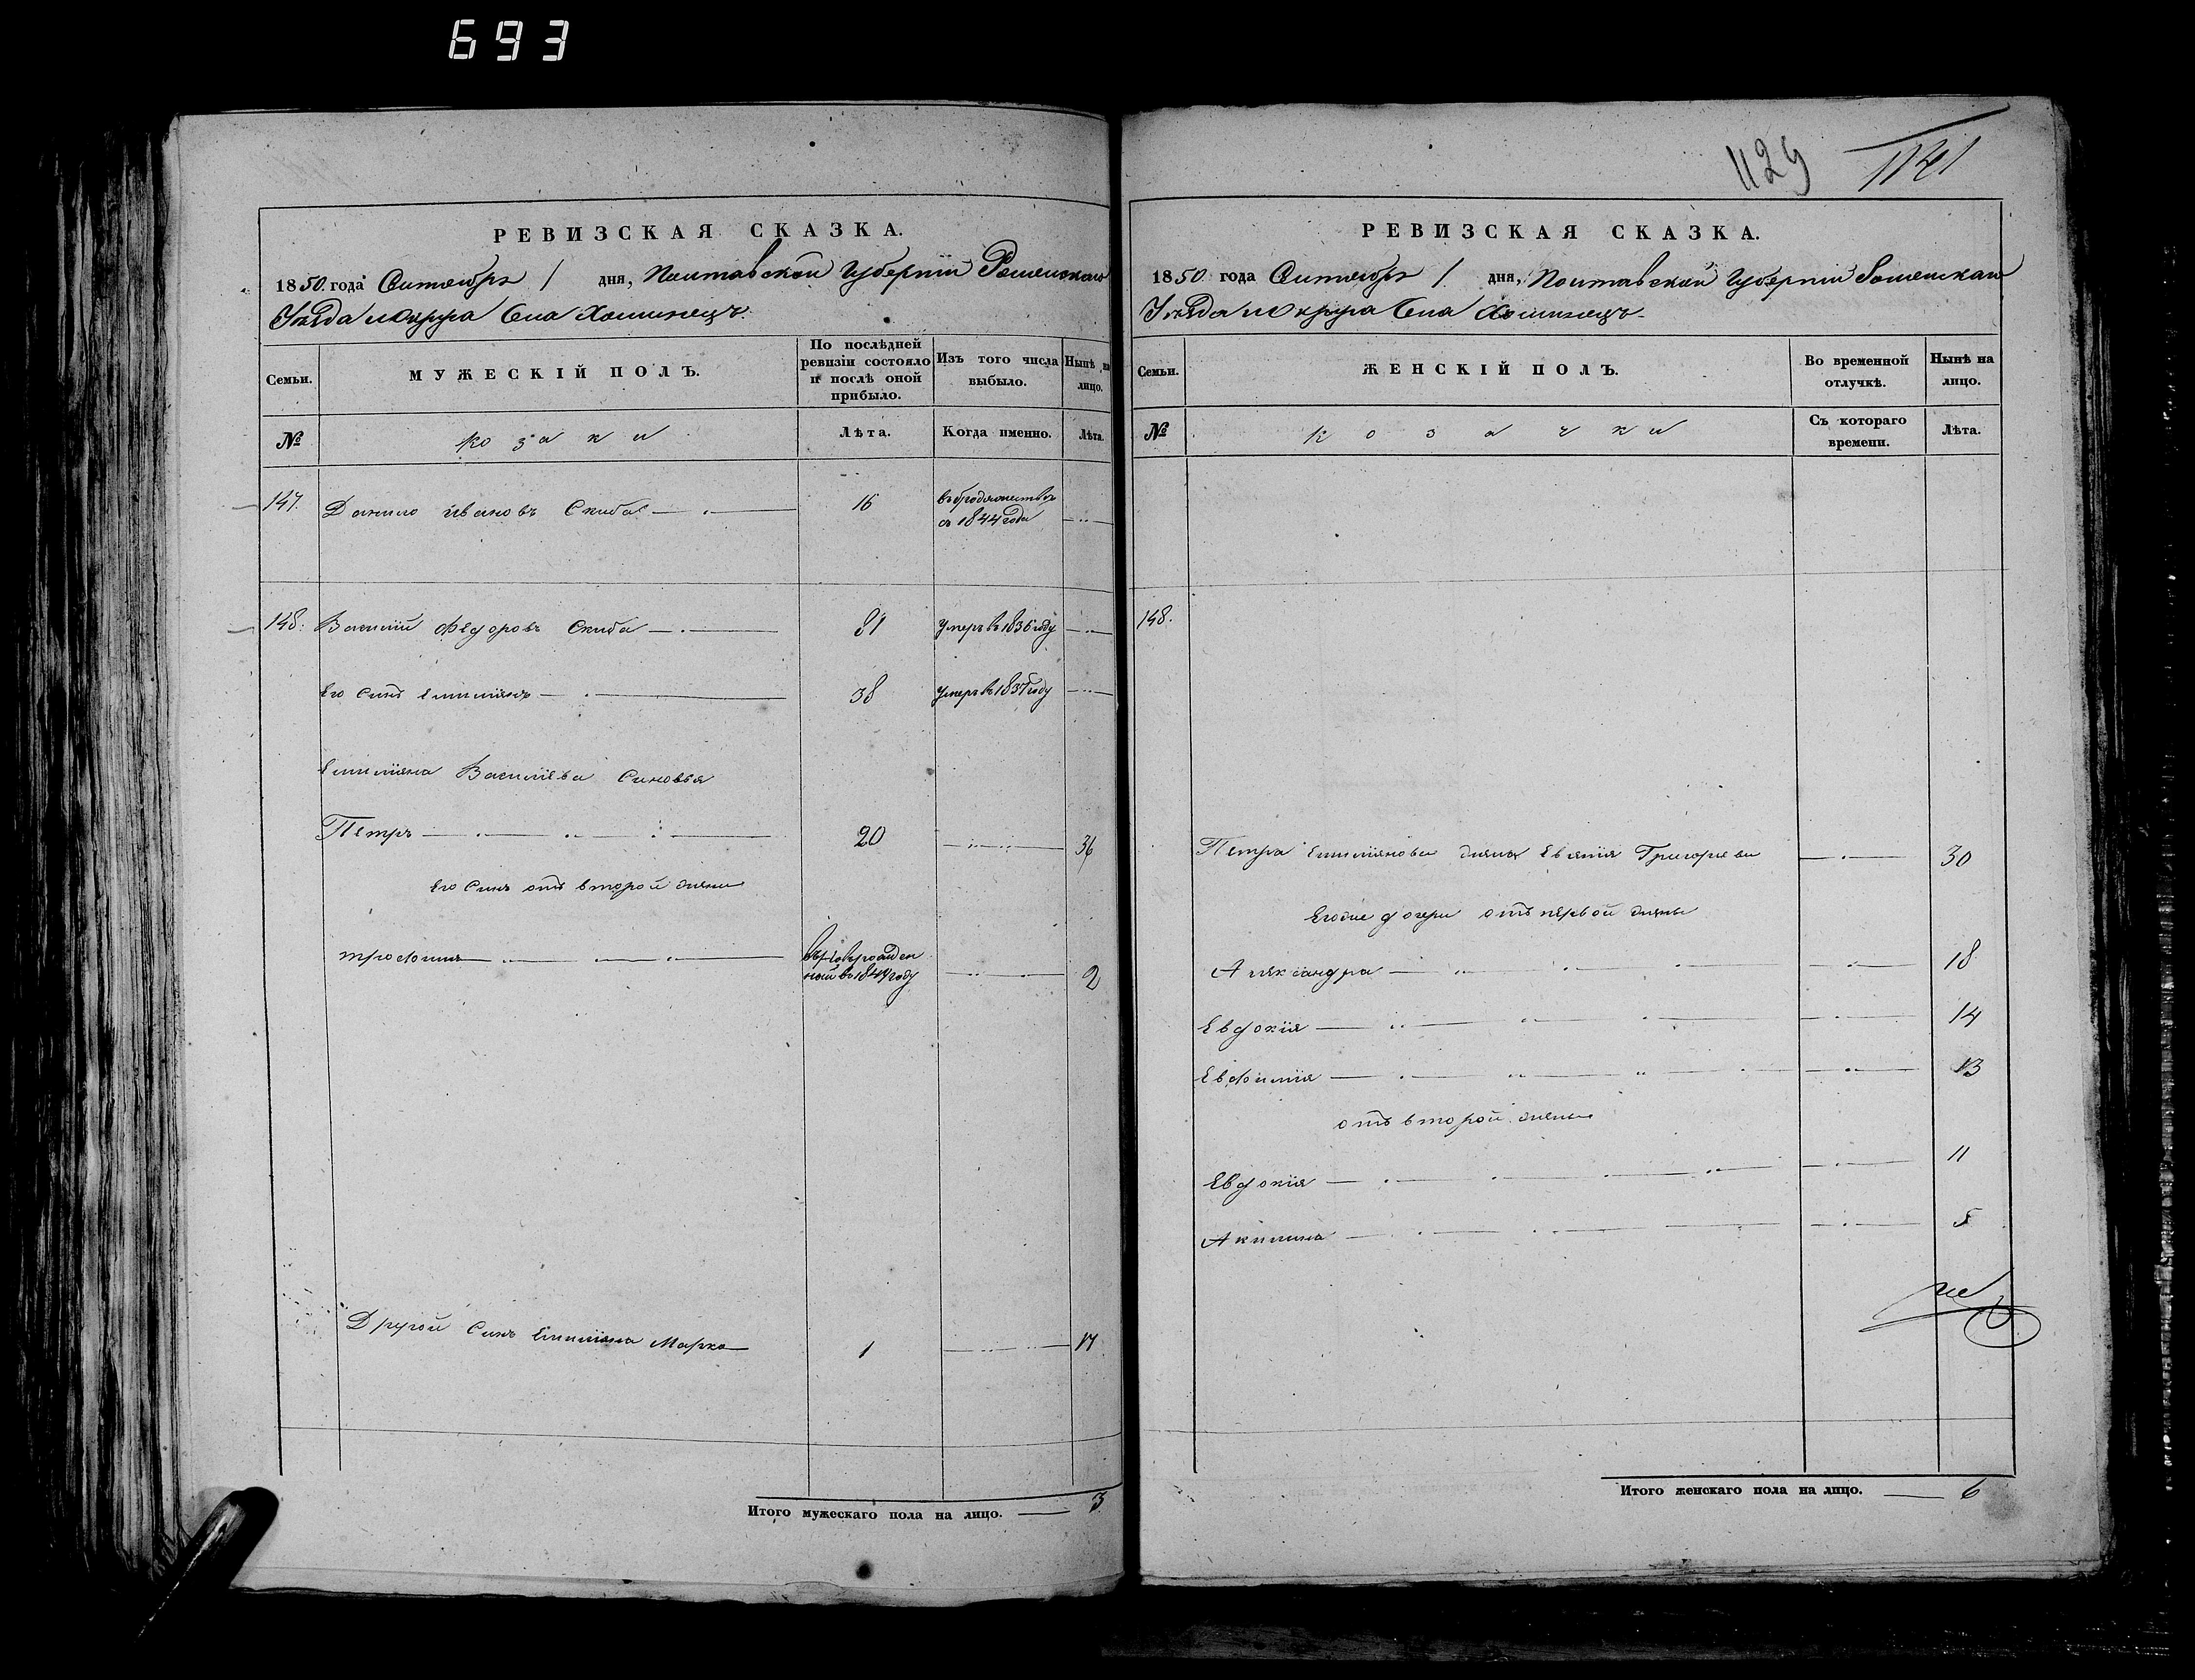 693
1129 1121
РЕВИЗСКАЯ СКАЗКА.
1850 года Сентебръ 1 дня, Полтавской Губерніи Роменскаго
Уезда и Округа Села Хоминецъ.
Семьи.
МУЖЕСКІЙ ПОЛЪ.
По послѣдней
ревизіи состояло
и послѣ оной
прибыло.
Изъ того числа
выбыло.
Нынѣ на
лицо.
№
козаки
Лѣта.
Когда именно.
Лѣта.
147. Данило Ивановъ Скиба 16
съ 1844 года
148. Василій Федоровъ Скиба 81 умеръ в 1836 году
Его Синъ Емиліянъ 38 умеръ в 1837 году
Емиліяна Василіева Синовья
Петръ 20 36
Его Синъ отъ второй жены
трофимъ вновь рожден
ной в 1848 году 2
Другой Синъ Емиліяна Марко 1 17
Итого мужескаго пола на лицо. 3
РЕВИЗСКАЯ СКАЗКА.
1850 года Сентебръ 1 дня, Полтавской Губерніи Роменскаго
Уезда и Округа Села Хоминецъ
Семьи.
ЖЕНСКІЙ ПОЛЪ.
Во временной
отлучкѣ.
Нынѣ на
лицо.
№
козачки
Съ котораго
времени.
Лѣта.
148.
Петра Емиліянова жена Григориева 30
Егоже дочери отъ первой жены
Александра 18
Евдокія 14
Евфимія 13
отъ второй жены
Евдокія 11
Акилина 5
Итого женскаго пола на лицо. 6